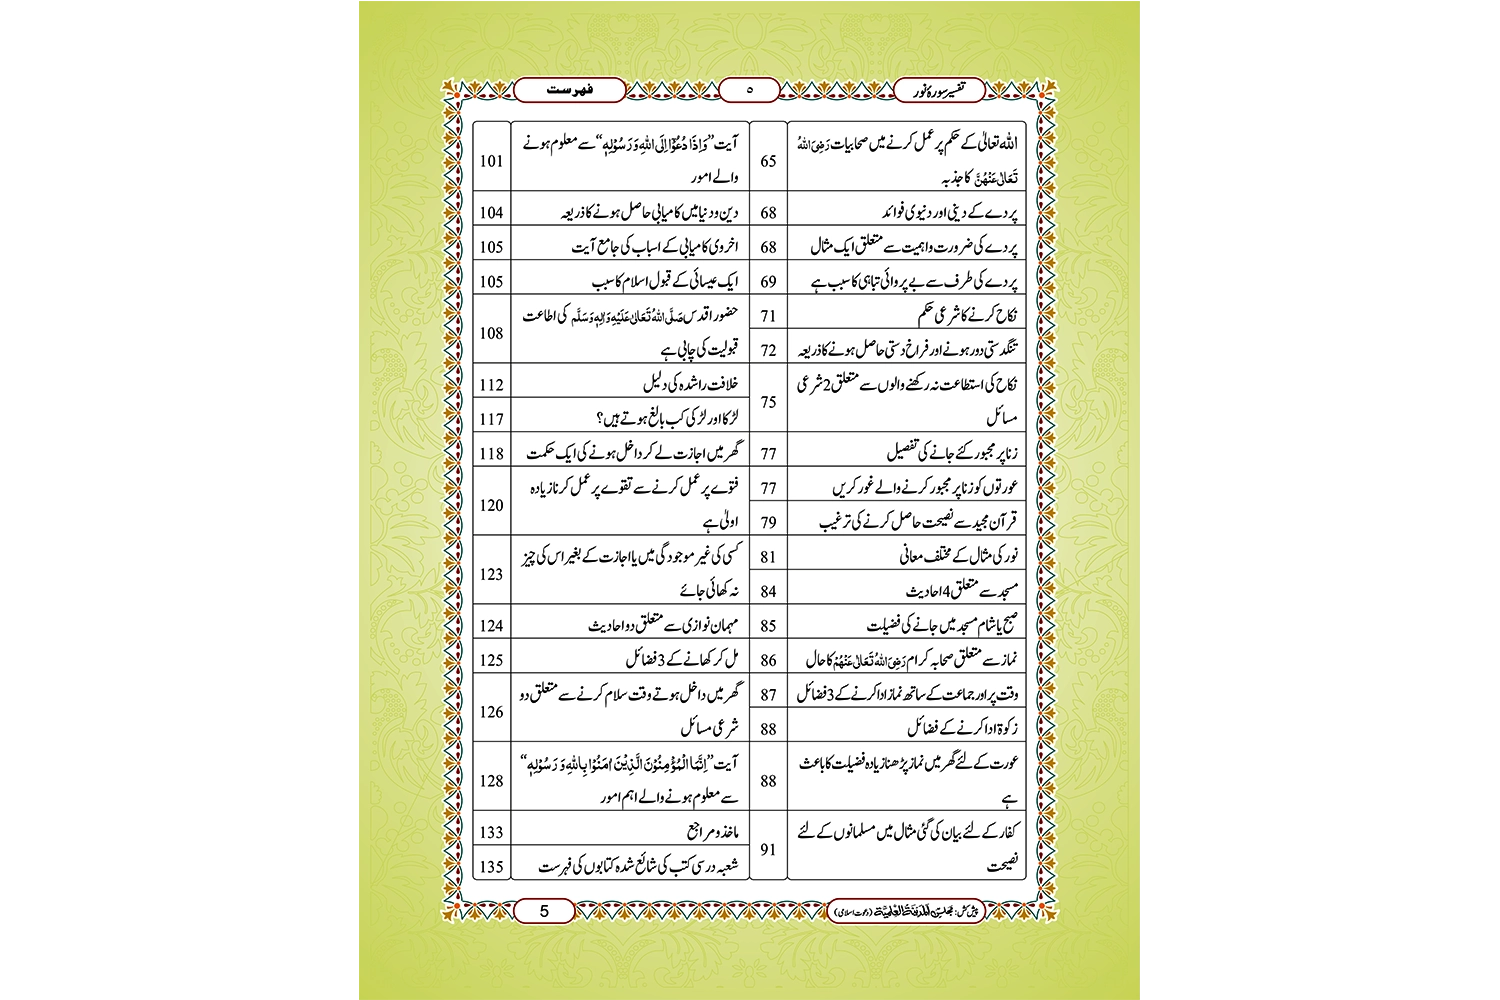 تفسیر سورۂ نور
۵
فہرست
اللہ تعالیٰ کے حکم پر عمل کرنے میں صحابیات رَضِیَ اللہُ
تَعَالٰی عَنْہُنَّ کا جذبہ
65
پردے کے دینی اور دنیوی فوائد
68
پردے کی ضرورت و اہمیت سے متعلق ایک مثال
68
پردے کی طرف سے بے پروائی تباہی کا سبب ہے
69
نکاح کرنے کا شرعی حکم
71
تنگدستی دور ہونے اور فراخ دستی حاصل ہونے کا ذریعہ
72
نکاح کی استطاعت نہ رکھنے والوں سے متعلق 2 شرعی
مسائل
75
زنا پر مجبور کئے جانے کی تفصیل
77
عورتوں کو زنا پر مجبور کرنے والے غور کریں
77
قرآن مجید سے نصیحت حاصل کرنے کی ترغیب
79
نور کی مثال کے مختلف معانی
81
مسجد سے متعلق 4 احادیث
84
صبح یا شام مسجد میں جانے کی فضیلت
85
نماز سے متعلق صحابہ کرام رَضِیَ اللہُ تَعَالٰی عَنْہُمْ کا حال
86
وقت پر اور جماعت کے ساتھ نماز ادا کرنے کے 3 فضائل
87
زکوٰۃ ادا کرنے کے فضائل
88
عورت کے لئے گھر میں نماز پڑھنا زیادہ فضیلت کا باعث
ہے
88
کفار کے لئے بیان کی گئی مثال میں مسلمانوں کے لئے
نصیحت
91
آیت ”وَاِذَا دُعُوْۤا اِلَى اللّٰهِ وَ رَسُوْلِهٖ“ سے معلوم ہونے
والے امور
101
دین و دنیا میں کامیابی حاصل ہونے کا ذریعہ
104
اخروی کامیابی کے اسباب کی جامع آیت
105
ایک عیسائی کے قبول اسلام کا سبب
105
حضور اقدس صَلَّی اللہُ تَعَالٰی عَلَیْہِ وَاٰلِہٖ وَسَلَّم کی اطاعت
قبولیت کی چابی ہے
108
خلافت راشدہ کی دلیل
112
لڑکا اور لڑکی کب بالغ ہوتے ہیں؟
117
گھر میں اجازت لے کر داخل ہونے کی ایک حکمت
118
فتوے پر عمل کرنے سے تقوے پر عمل کرنا زیادہ
اولیٰ ہے
120
کسی کی غیر موجودگی میں یا اجازت کے بغیر اس کی چیز
نہ کھائی جائے
123
مہمان نوازی سے متعلق دو احادیث
124
مل کر کھانے کے 3 فضائل
125
گھر میں داخل ہوتے وقت سلام کرنے سے متعلق دو
شرعی مسائل
126
آیت ”اِنَّمَا الْمُؤْمِنُوْنَ الَّذِیْنَ اٰمَنُوْا بِاللّٰهِ وَ رَسُوْلِهٖ“
سے معلوم ہونے والے اہم امور
128
ماخذ و مراجع
133
شعبہ درسی کتب کی شائع شدہ کتابوں کی فہرست
135
پیش کش: مجلس اَلْمَدِیْنَۃُ الْعِلْمِیَّۃ (دعوت اسلامی)
5